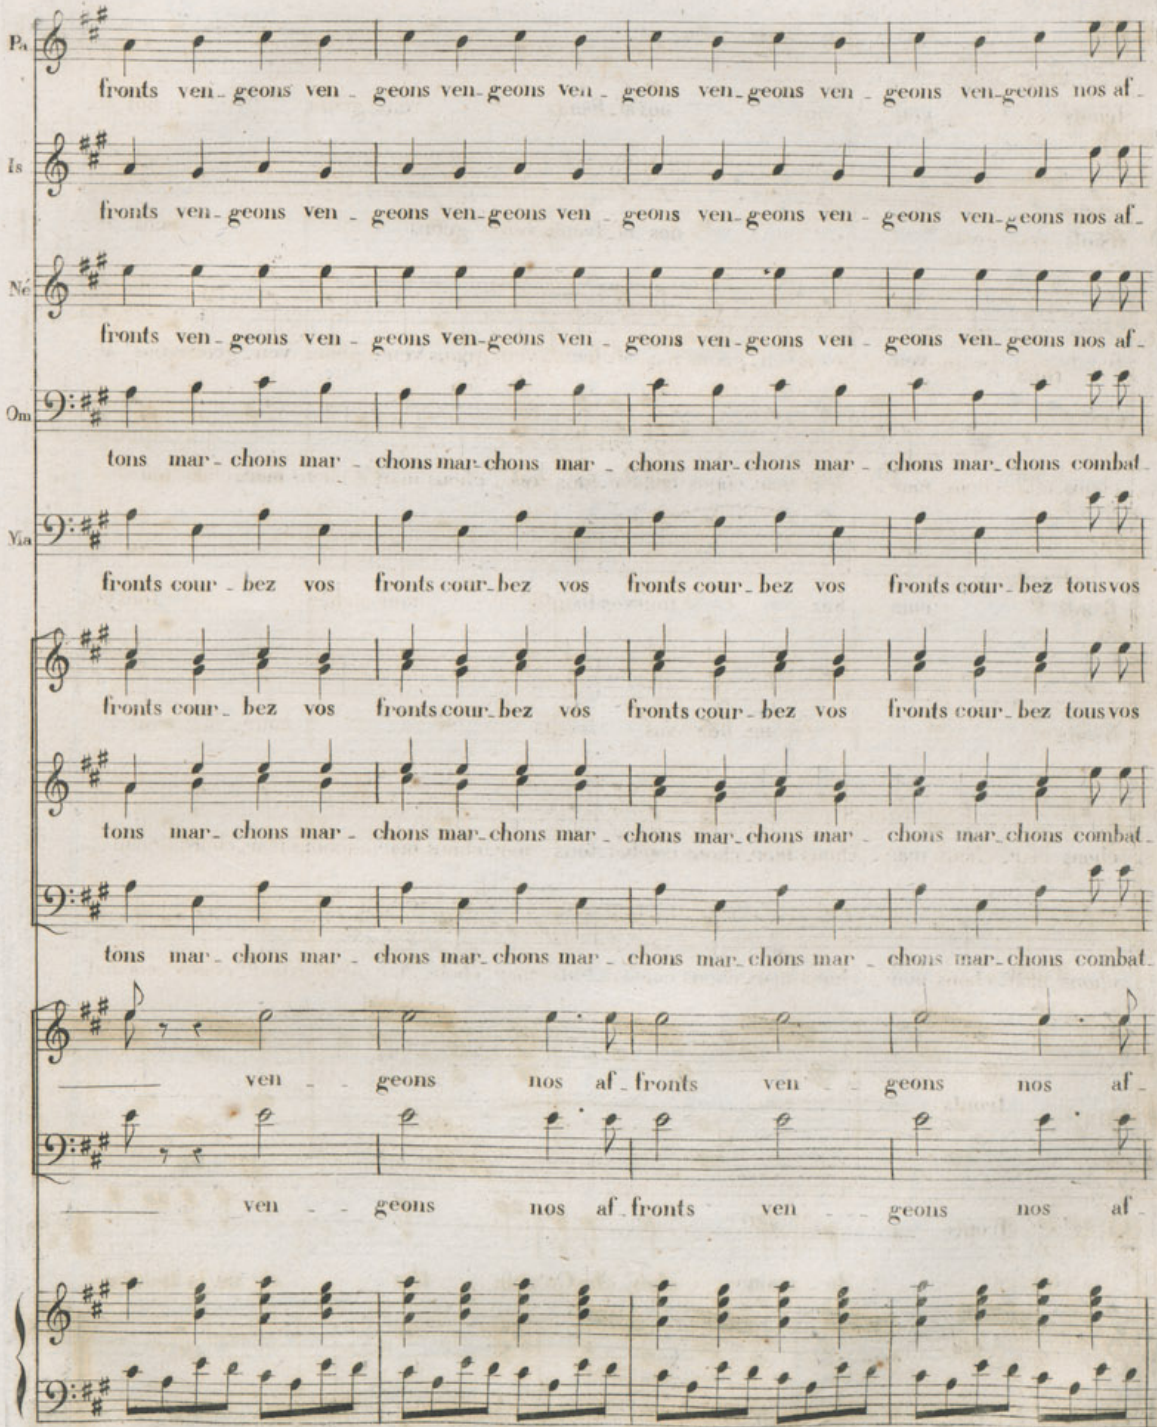 Pa
fronts ven - geons ven - geons ven - geons ven - geons ven - geons ven - geons ven - geons nos af -
Is
fronts ven - geons ven - geons ven - geons ven - geons ven - geons ven - geons ven - geons nos af -
Né
fronts ven - geons ven - geons ven - geons ven - geons ven - geons ven - geons ven - geons nos af -
Om
tons mar - chons mar - chons mar - chons mar - chons mar - chons mar - chons mar - chons combat -
fronts cour - bez vos fronts cour - bez vos fronts cour - bez vos fronts cour - bez tous vos
fronts cour - bez vos fronts cour - bez vos fronts cour - bez vos fronts cour - bez tous vos
tons mar - chons mar - chons mar - chons mar - chons mar - chons mar - chons mar - chons combat -
tons mar - chons mar - chons mar - chons mar - chons mar - chons mar - chons mar - chons combat -
ven - geons nos af - fronts ven - geons nos af -
ven - geons nos af - fronts ven - geons nos af -